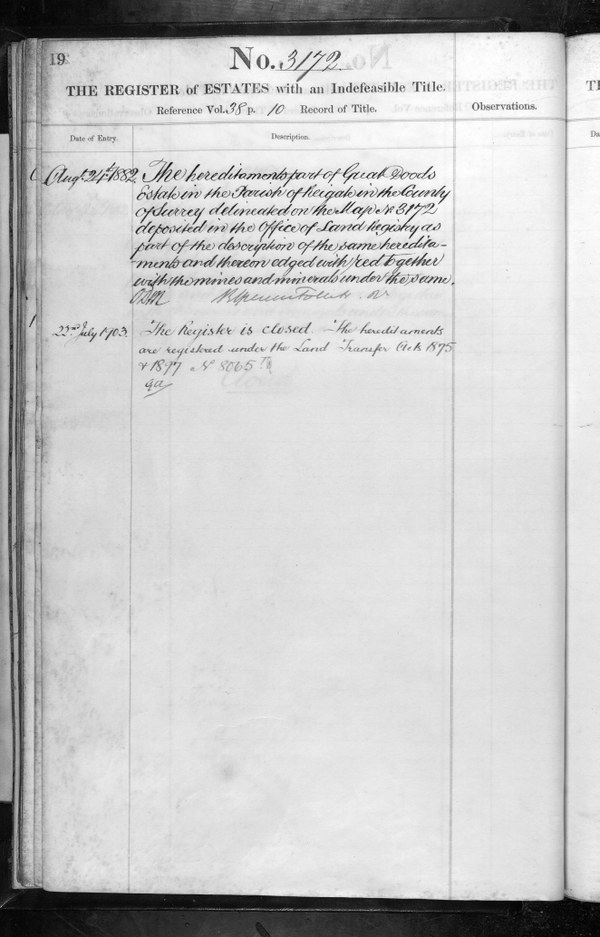 19.
No. 3172
THE REGISTER of ESTATES with an Indefeasible Title.
Reference Vol. 38 p. 10 Record of Title.
Observations.
Date of Entry.
Description.
Augt. 24th 1882. The hereditaments part of Great Doods
Estate in the Parish of Reigate in the County
of Surrey delineated on the Map No 3172
deposited in the Office of Land Registry as
part of the description of the same heredita-
-ments and thereon edged with red together
with the mines and minerals under the same.
22nd July 1903. The Register is closed The hereditaments
are registered under the Land Transfer Acts 1875
& 1897 No 8065